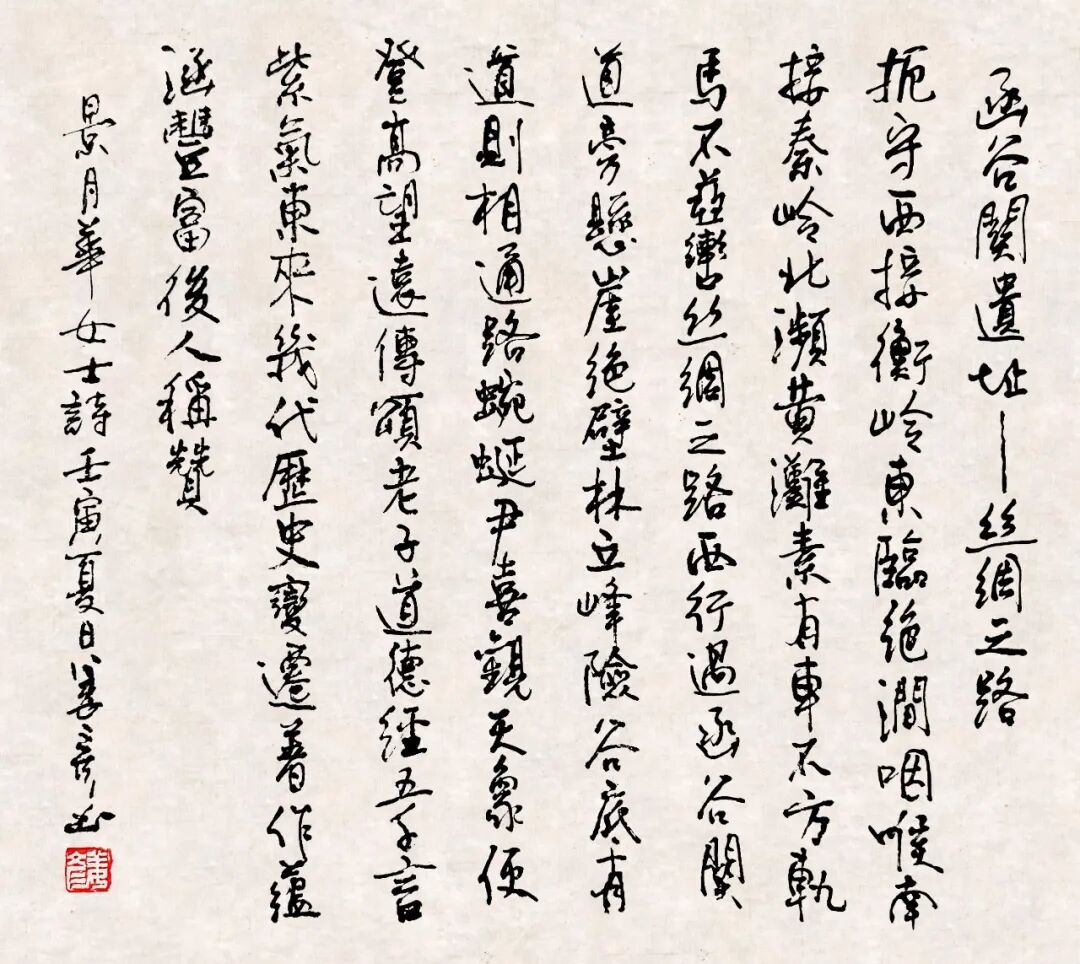 函谷關遺址——丝綢之路
扼守西接衡岭東臨絕澗咽喉南
接秦岭北瀕黄灘素有車不方軌
馬不並轡丝綢之路西行過函谷關
道旁懸崖绝壁林立峰險谷底有
道則相通路蜿蜒尹喜觀天象便
登高望遠傳頌老子道德經五千言
紫氣東來幾代歷史變遷著作蘊
涵豐富後人稱贊
景月華女士詩壬寅夏日姜彦書